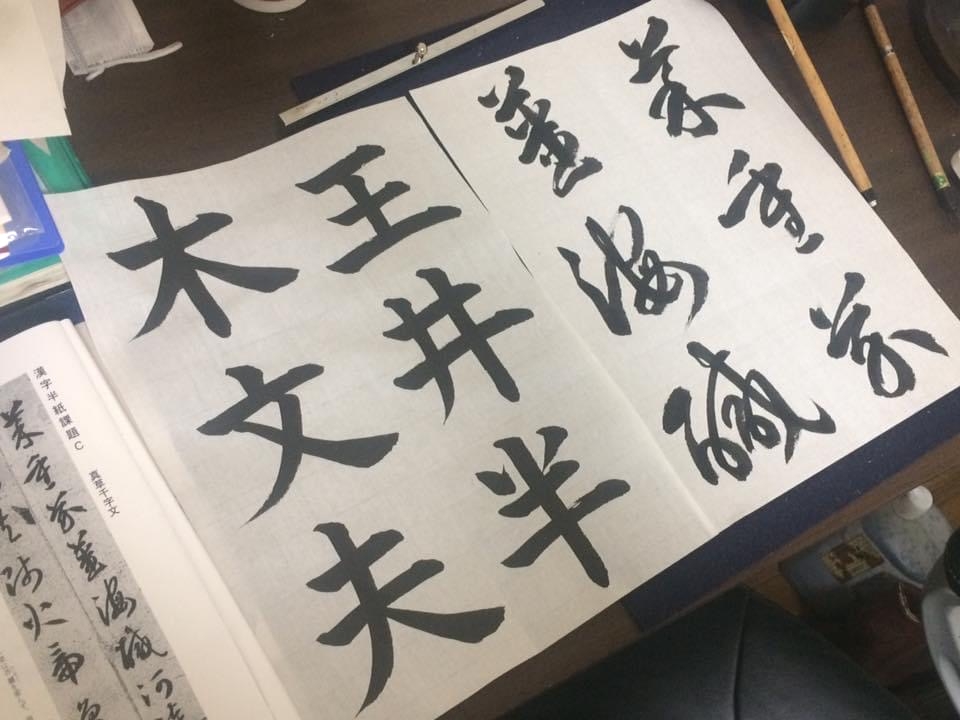 菜重芥
薑海鹹
王井半
木文夫
漢字半紙課題C
真草千字文
菜重芥薑海鹹河
師火帝